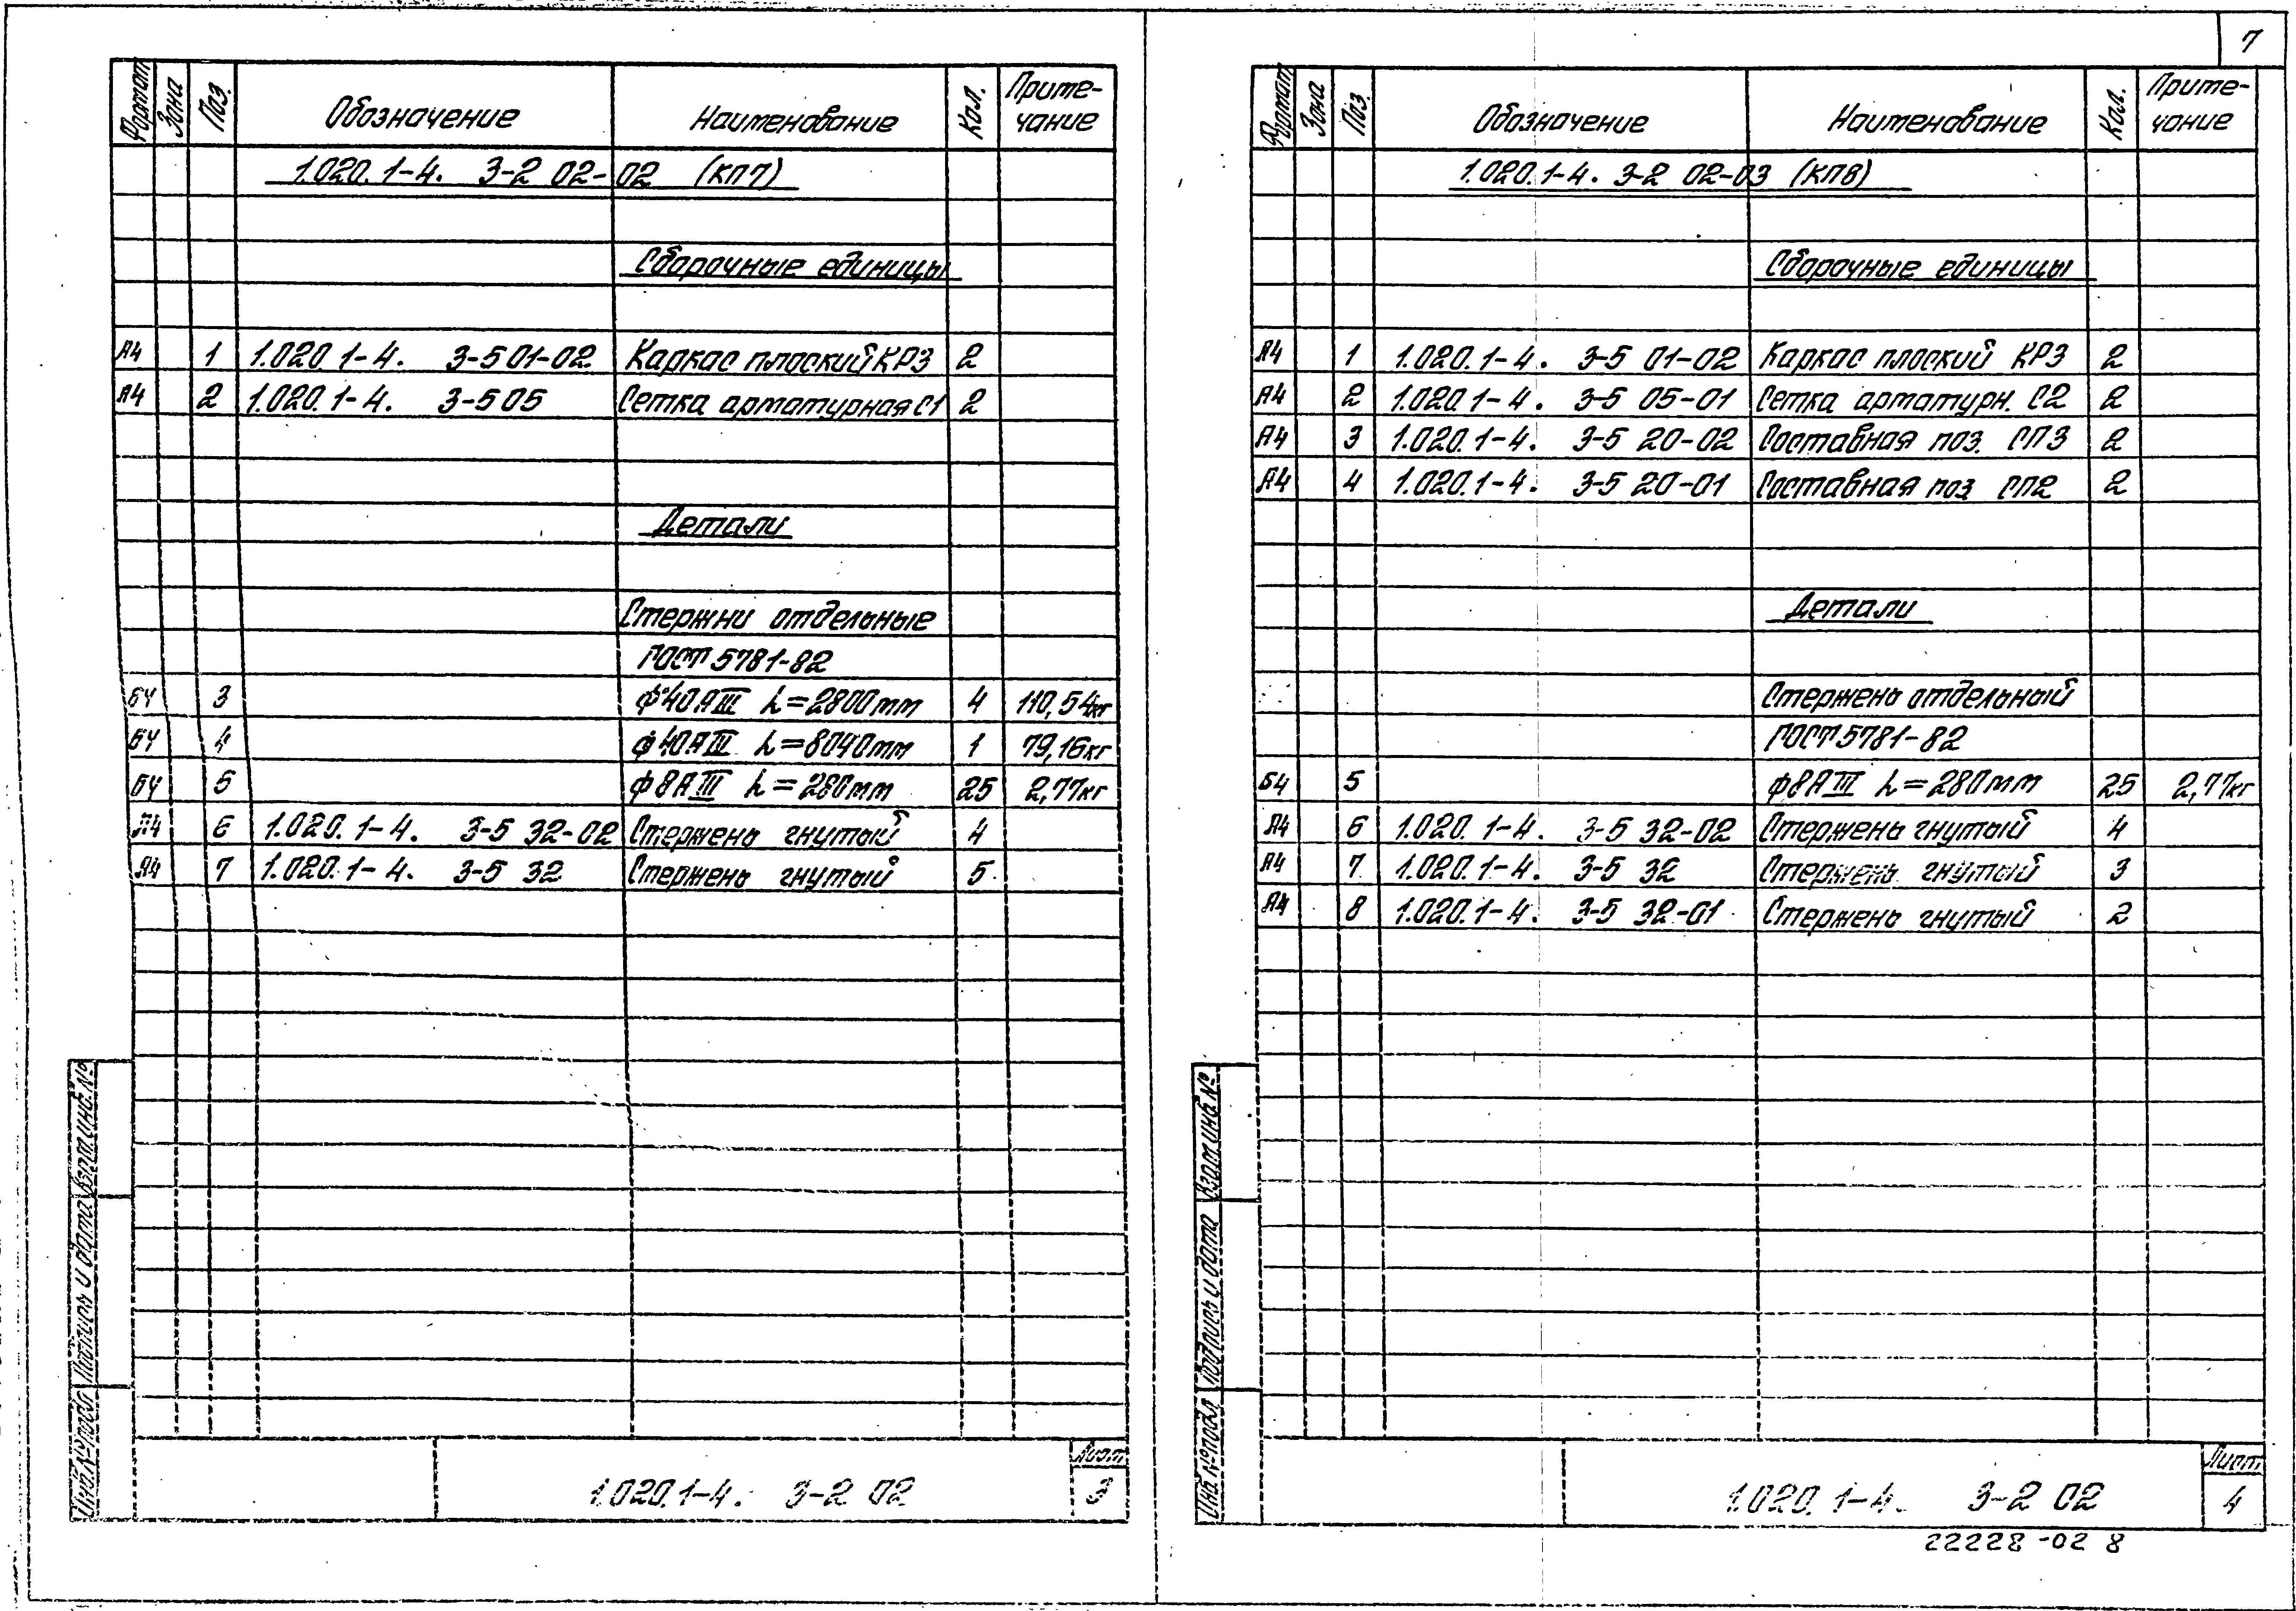 7
Формат Зона Поз. Обозначение Наименование Кол. Приме-
чание
1.020.1-4. 3-2 02-02 (КП7)
Сборочные единицы
А4 1 1.020.1-4. 3-5 01-02 Каркас плоский КР3 2
А4 2 1.020.1-4. 3-5 05 Сетка арматурная С1 2
Детали
Стержни отдельные
ГОСТ 5781-82
БЧ 3 ф40АIII L=2800мм 4 110,54кг
БЧ 4 ф40АIII L=8040мм 1 79,16кг
БЧ 5 ф8АIII L=280мм 25 2,77кг
А4 6 1.020.1-4. 3-5 32-02 Стержень гнутый 4
А4 7 1.020.1-4. 3-5 32 Стержень гнутый 5
Инв.№подл Подпись и дата Взам.инв.№
1.020.1-4. 3-2 02
Лист
3
Формат Зона Поз. Обозначение Наименование Кол. Приме-
чание
1.020.1-4. 3-2 02-03 (КП8)
Сборочные единицы
А4 1 1.020.1-4. 3-5 01-02 Каркас плоский КР3 2
А4 2 1.020.1-4. 3-5 05-01 Сетка арматурн. С2 2
А4 3 1.020.1-4. 3-5 20-02 Составная поз. СП3 2
А4 4 1.020.1-4. 3-5 20-01 Составная поз СП2 2
Детали
Стержень отдельный
ГОСТ 5781-82
БЧ 5 ф8АIII L=280мм 25 2,77кг
А4 6 1.020.1-4. 3-5 32-02 Стержень гнутый 4
А4 7 1.020.1-4. 3-5 32 Стержень гнутый 3
А4 8 1.020.1-4. 3-5 32-01 Стержень гнутый 2
Инв.№подл Подпись и дата Взам.инв.№
1.020.1-4. 3-2 02
Лист
4
22228-02 8